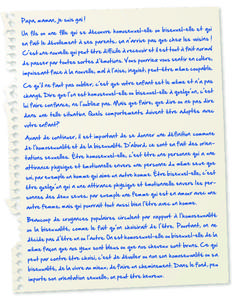 Papa, maman, je suis gai !
Un fils ou une fille qui se découvre homosexuel-elle ou bisexuel-elle et qui
en fait le dévoilement à ses parents, ça n'arrive pas que chez les voisins !
C'est une nouvelle qui peut être difficile à recevoir et il est tout à fait normal
de passer par toutes sortes d'émotions. Vous pourriez vous sentir en colère,
impuissant face à la nouvelle, mal à l'aise, inquiet, peut-être même coupable.
Ce qu'il ne faut pas oublier, c'est que votre enfant est le même et n'a pas
changé. Dire que l'on est homosexuel-elle ou bisexuel-elle à quelqu'un, c'est
lui faire confiance, ne l'oubliez pas. Mais que faire, que dire ou ne pas dire
dans une telle situation. Quels comportements doivent être adoptés avec
votre enfant?
Avant de continuer, il est important de se donner une définition commune
de l'homosexualité et de la bisexualité. D'abord, ce sont en fait des orien-
tations sexuelles. Être homosexuel-elle, c'est être une personne qui a une
attirance physique et émotionnelle envers une personne du même sexe que
soi, par exemple un homme qui aime un autre homme. Être bisexuel-elle, c'est
être quelqu'un qui a une attirance physique et émotionnelle envers les per-
sonnes des deux sexes, par exemple une femme qui est en amour avec une
autre femme, mais qui pourrait tout aussi bien l'être avec un homme.
Beaucoup de croyances populaires circulent par rapport à l'homosexualité
ou la bisexualité, comme le fait qu'on choisirait de l'être. Pourtant, on ne
décide pas d'être un ou l'autre. On est homosexuel-elle ou bisexuel-elle de la
même façon que nos yeux sont bleus ou que nos cheveux sont bruns. Ce qui
peut par contre être choisi, c'est de dévoiler ou non son homosexualité ou sa
bisexualité, de la vivre au mieux, de faire un cheminement. Dans le fond, peu
importe son orientation sexuelle, on peut être heureux.